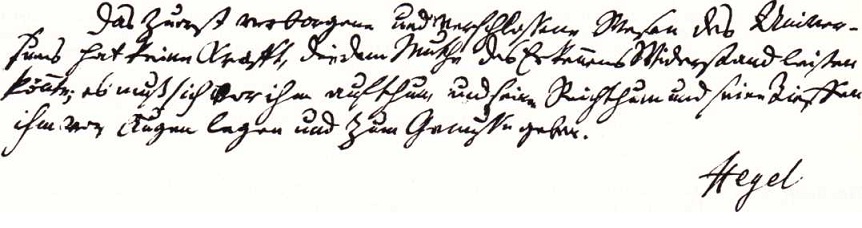 Das Zuerst verborgene und verschlossene Wesen des Univer-
sums hat keine Krafft, die dem Muthe des Erkennens Widerstand leisten
könnte; es muß sich vor ihm aufthun, und seinen Reichthum und seine Tieffen
ihm vor Augen legen und zum Genusse geben.
Hegel